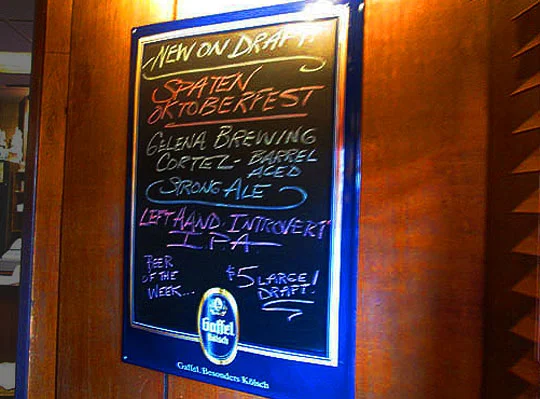 NEW ON DRAFT!
SPATEN
OKTOBERFEST
GELENA BREWING
CORTEZ - BARREL
AGED
STRONG ALE
LEFT HAND INTROVERT
IPA
BEER
OF THE
WEEK...
$5 LARGE!
DRAFT.
Gaffel
Kölsch
Gaffel. Besonders Kölsch